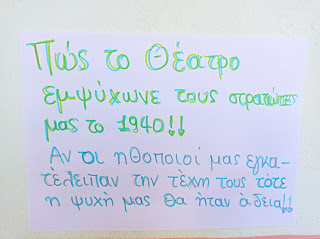 Πώς το Θέατρο
εμψύχωνε τους στρατιώτες
μας το 1940!!
Αν οι ηθοποιοί μας εγκα-
τέλειπαν την τέχνη τους τότε
η ψυχή μας θα ήταν άδεια!!